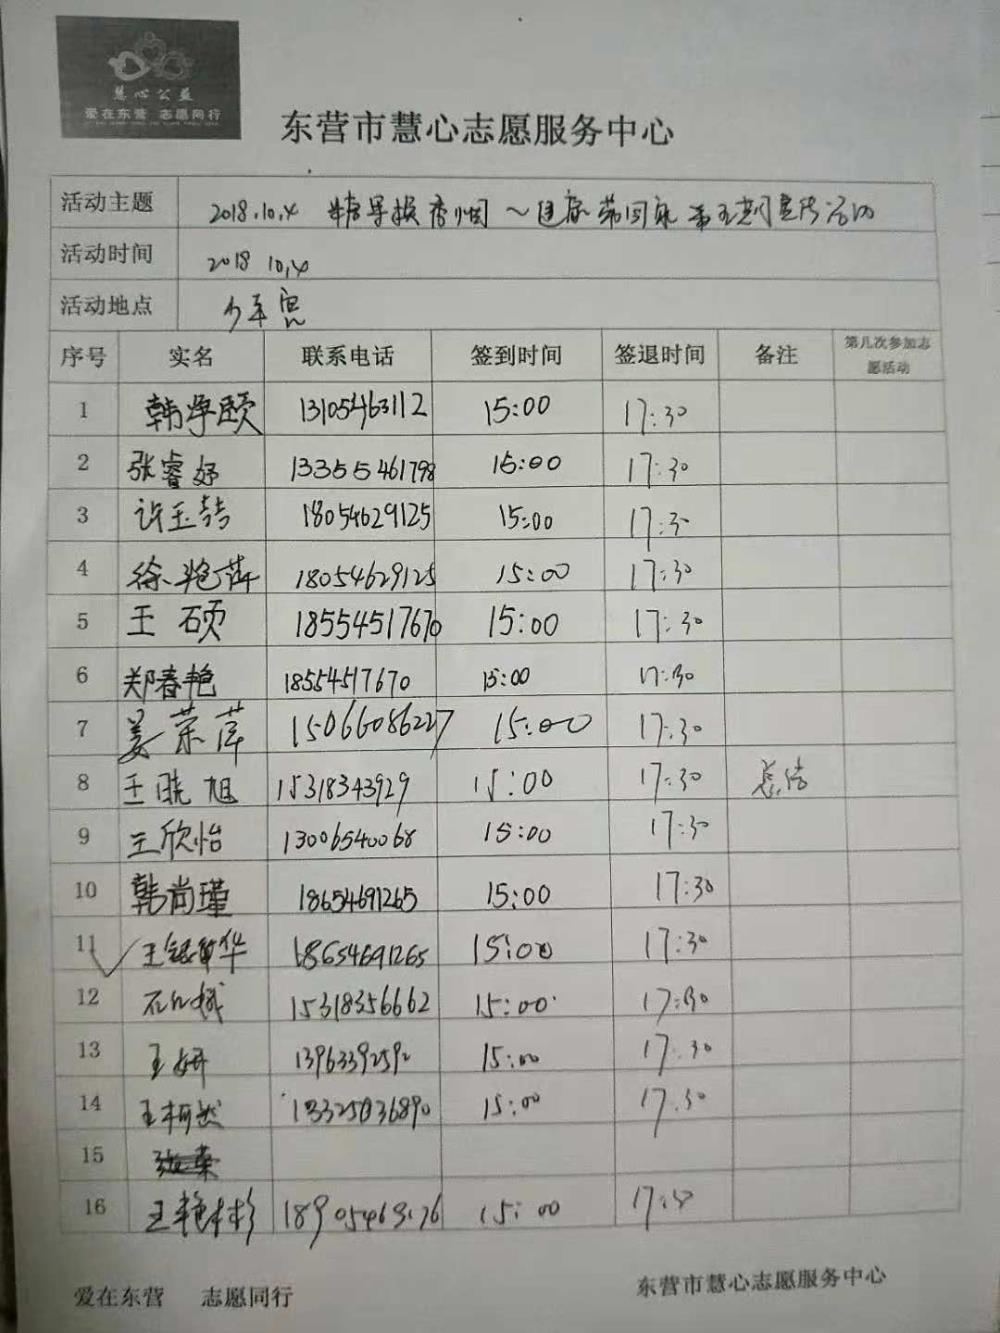 慧心公益
爱在东营 志愿同行
东营市慧心志愿服务中心
活动主题 2018.10.4 糖果换香烟～健康带回家 第五期宣传活动
活动时间 2018 10.4
活动地点 少年宫
序号 实名 联系电话 签到时间 签退时间 备注 第几次参加志愿活动
1 韩学颐 13105463112 15:00 17:30
2 张睿妤 13355461798 15:00 17:30
3 许玉喆 18054629125 15:00 17:30
4 徐艳萍 18054629125 15:00 17:30
5 王硕 18554517670 15:00 17:30
6 郑春艳 18554517670 15:00 17:30
7 姜荣萍 15066086227 15:00 17:30
8 王晓旭 15318343929 15:00 17:30 总结
9 王欣怡 13006540068 15:00 17:30
10 韩尚瑾 18654691265 15:00 17:30
11 王 华 18654691265 15:00 17:30
12 15318356662 15:00 17:30
13 王妍 15:00 17.30
14 王柯然 15:00 17.30
15
16 王艳彬 15:00
爱在东营 志愿同行
东营市慧心志愿服务中心